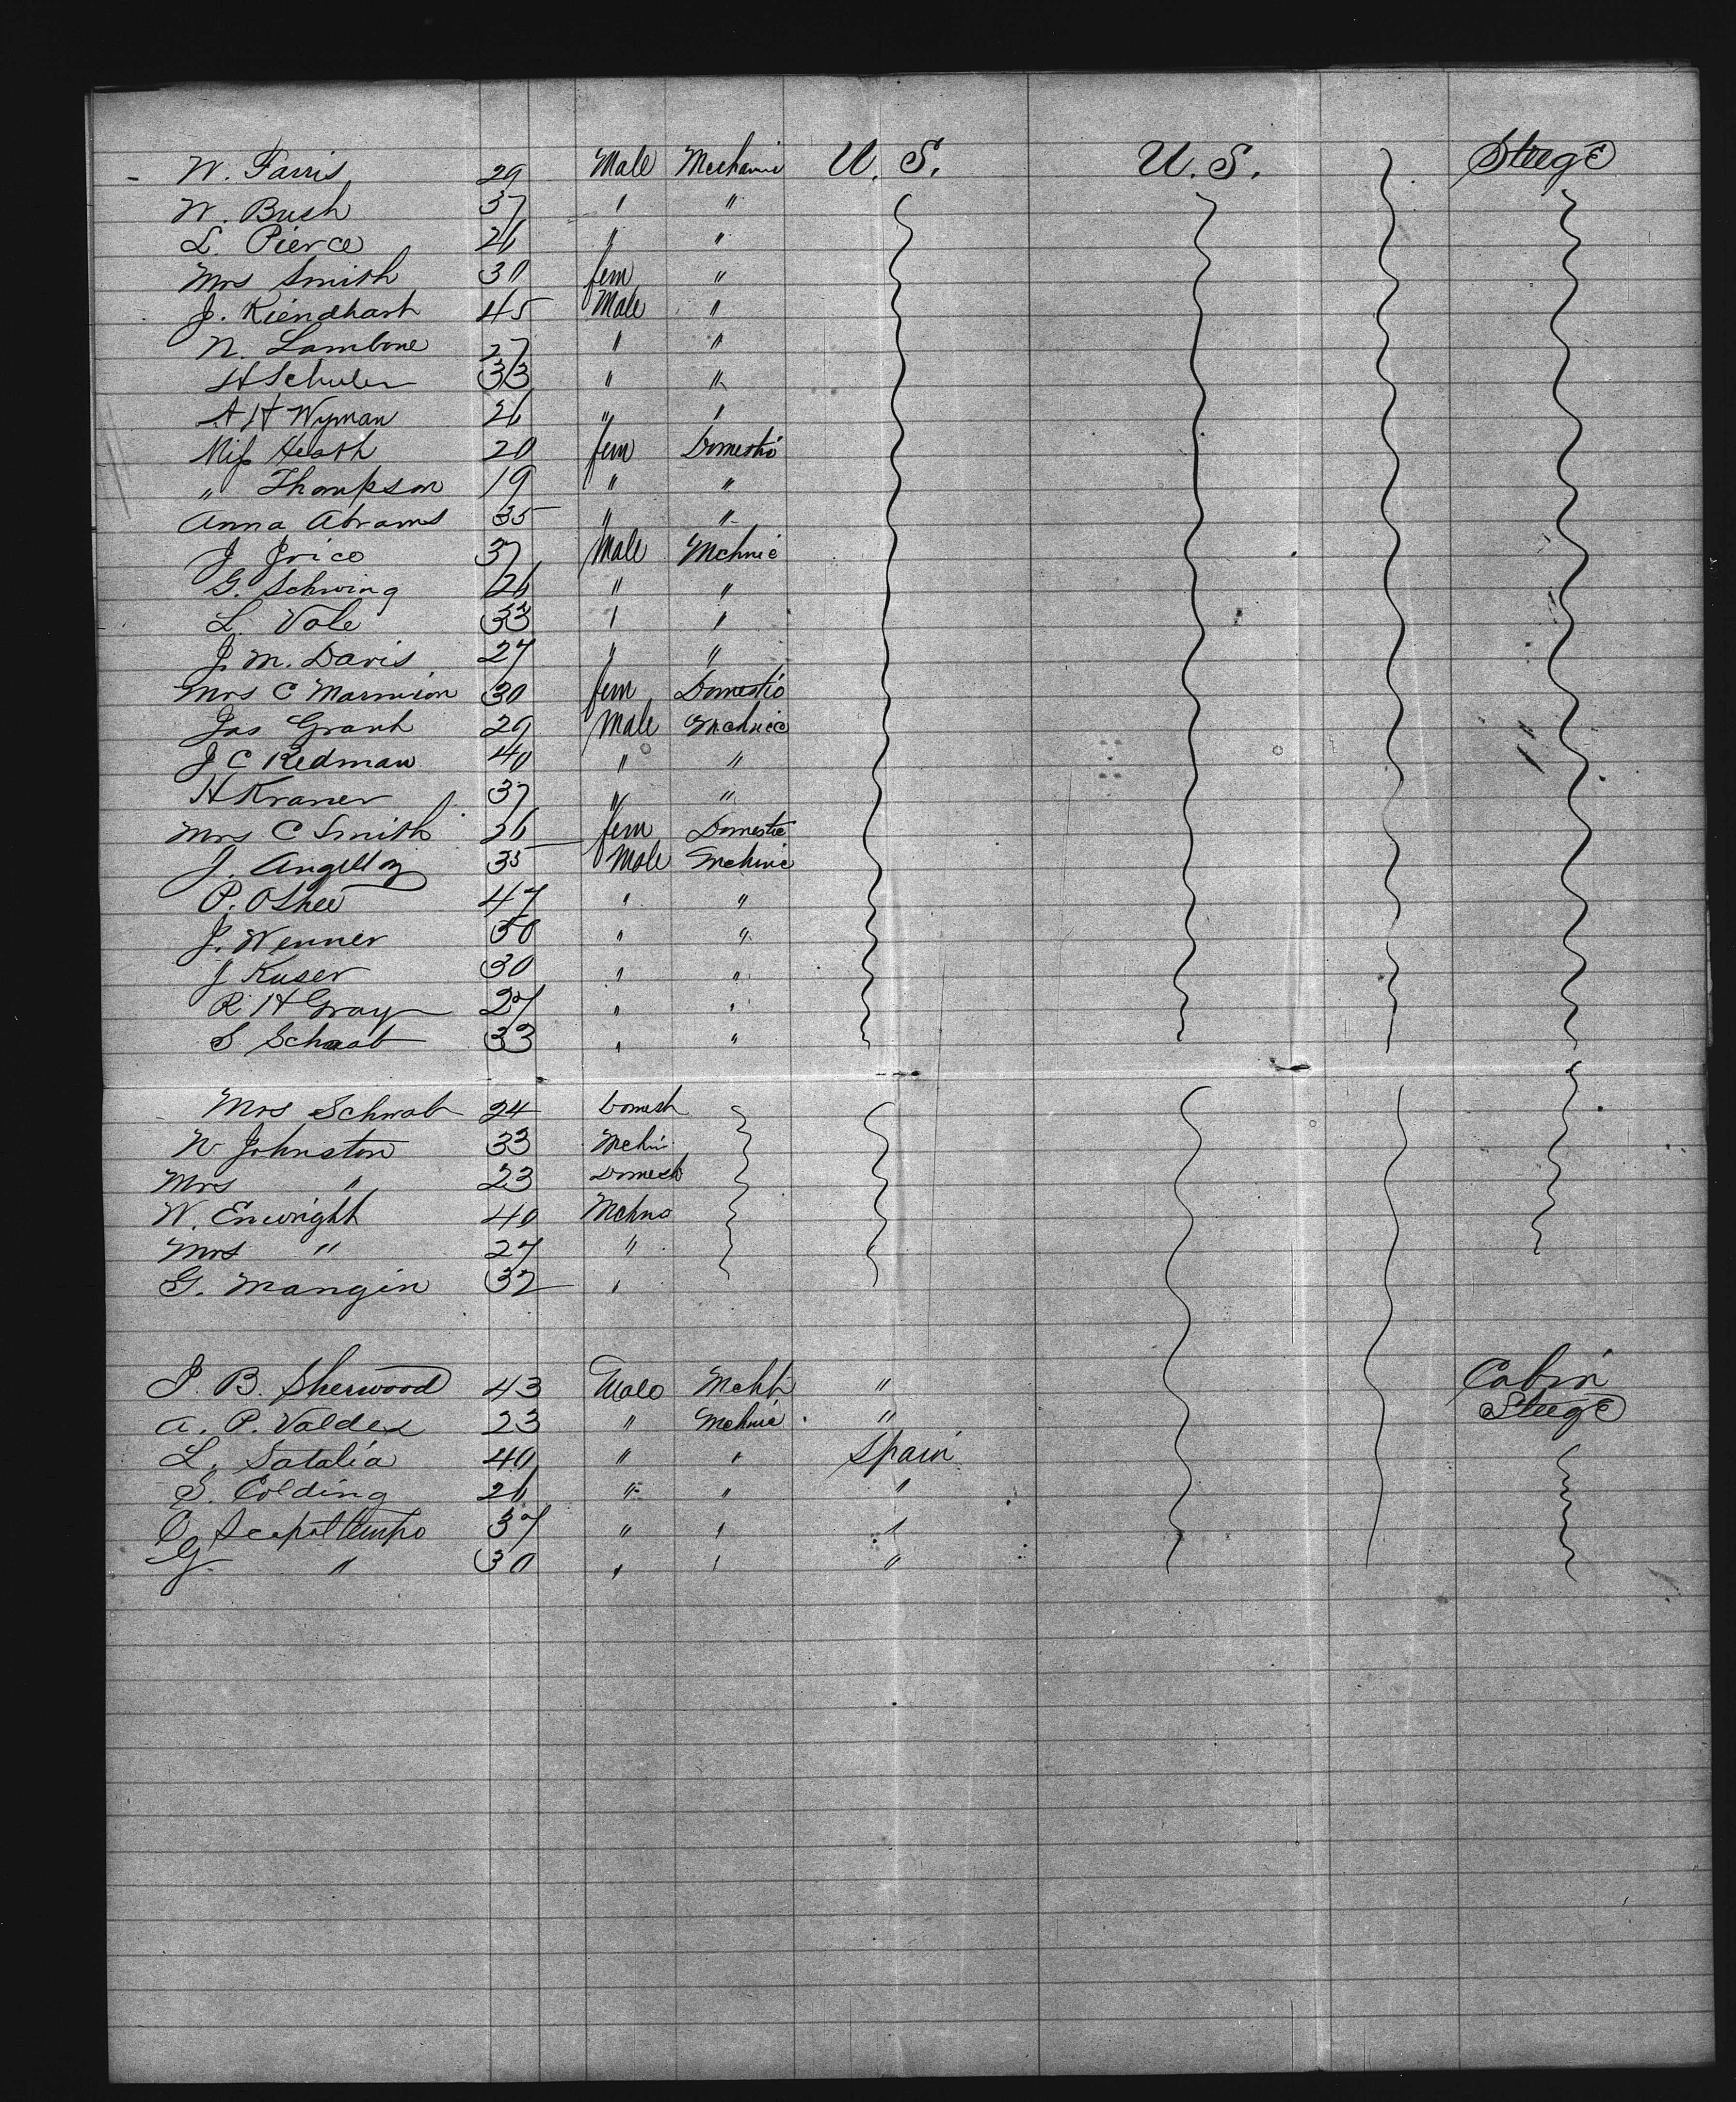 - W. Farris 29 Male Mechanic U. S. U. S. Steege
W. Bush 37 " "
L. Pierce 26 " "
Mrs Smith 30 fem "
J. Riendhart 45 Male "
N. Lambone 27 " "
H Schuler 33 " "
A H Wyman 26 " "
Miss Heath 20 fem Domestic
" Thompson 19 " "
Anna Abrams 35 " "
J Price 37 Male Mchnic
G. Schwing 26 " "
L. Vale 33 " "
J. M. Davis 27 " "
Mrs C Marmion 30 fem Domestic
Jas Grant 29 Male Mchnic
J C Redman 40 " "
H Kramer 37 " "
Mrs C Smith 26 fem Domestic
J. 35 Male Mchnic
P. OShee 47 " "
J. Wenner 50 " "
J Kuser 30 " "
R H Gray 27 " "
S Schaab 33 " "
Mrs Schwab 24 Domest
W Johnston 33 Mchni
Mrs " 23 Domest
W. Enwright 40 Mchnc
Mrs " 27 "
G. Mangin 32 "
J. B. Sherwood 43 Male Mcht " Cabin
A. P. Valdes 23 " Mchnic " Steege
L. Satalia 40 " " Spain
S. Colding 26 " " "
O 37 " " "
G " 30 " " "